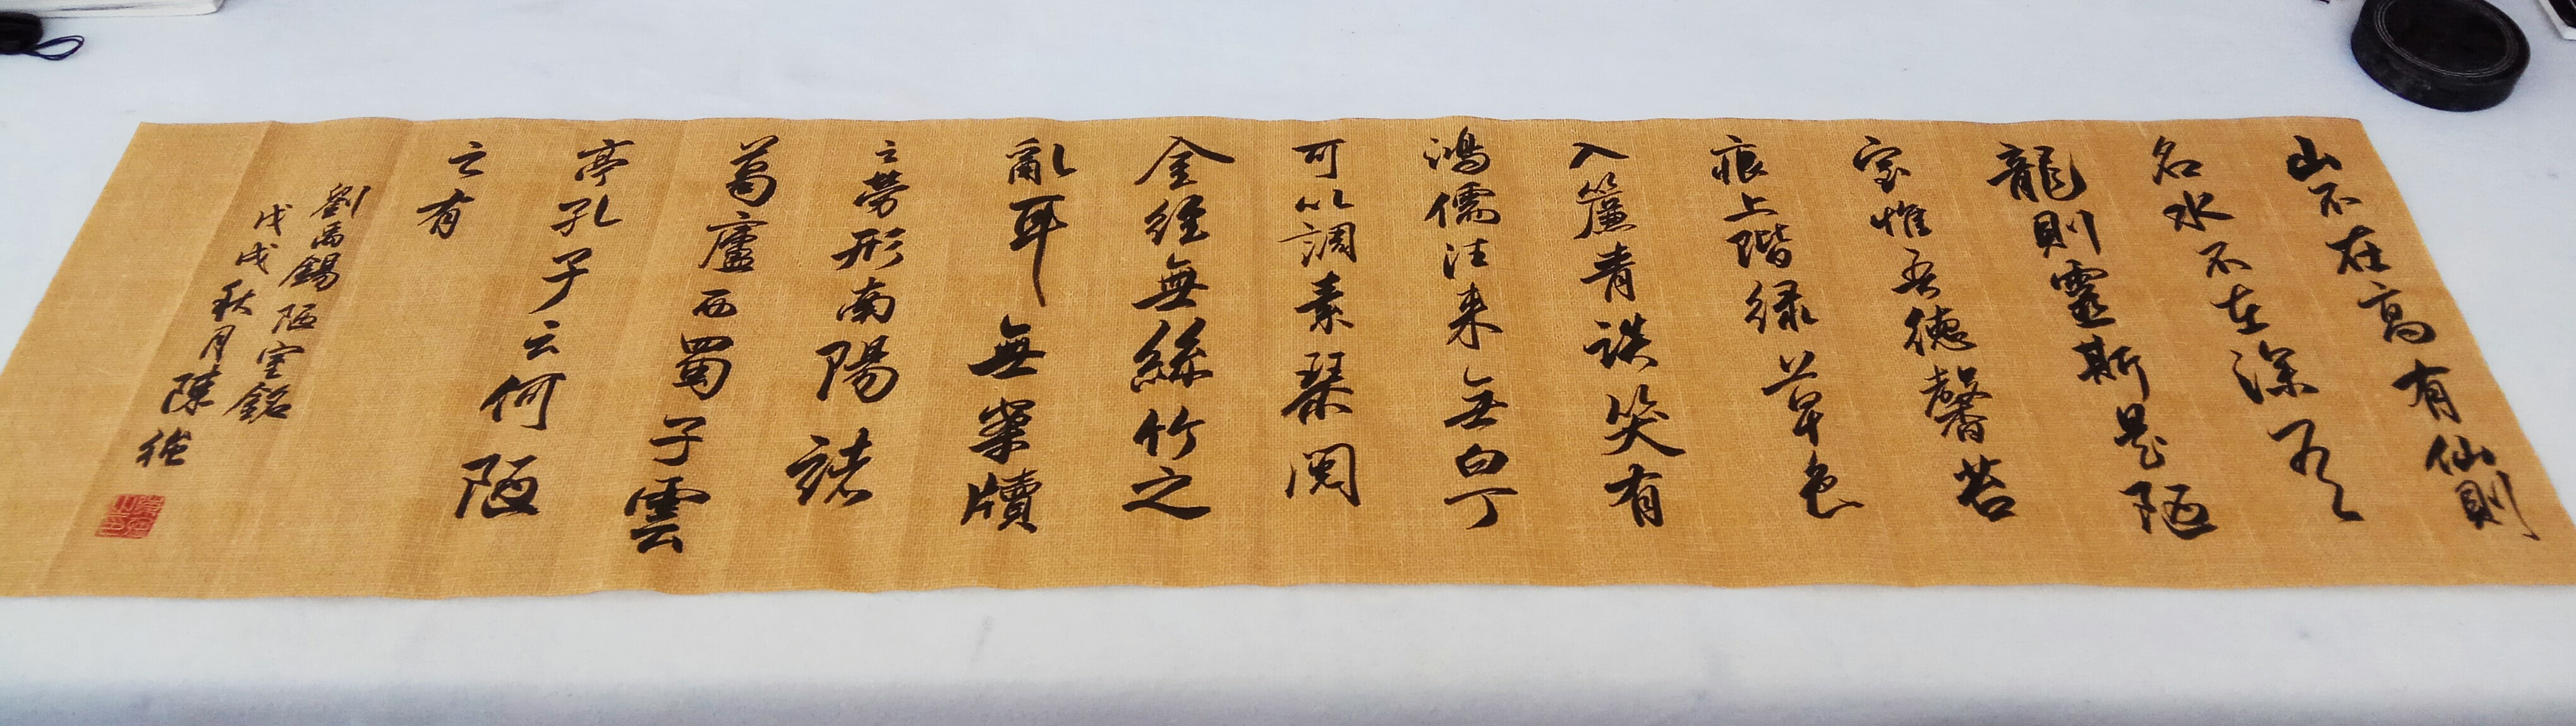 山不在高有仙則
名水不在深有
龍則靈斯是陋
室惟吾德馨苔
痕上階绿草色
入簾青談笑有
鴻儒往来無白丁
可以調素琴閱
金經無絲竹之
亂耳無案牘
之勞形南陽諸
葛廬西蜀子雲
亭孔子云何陋
之有
劉禹錫陋室銘
戊戌秋月陳強